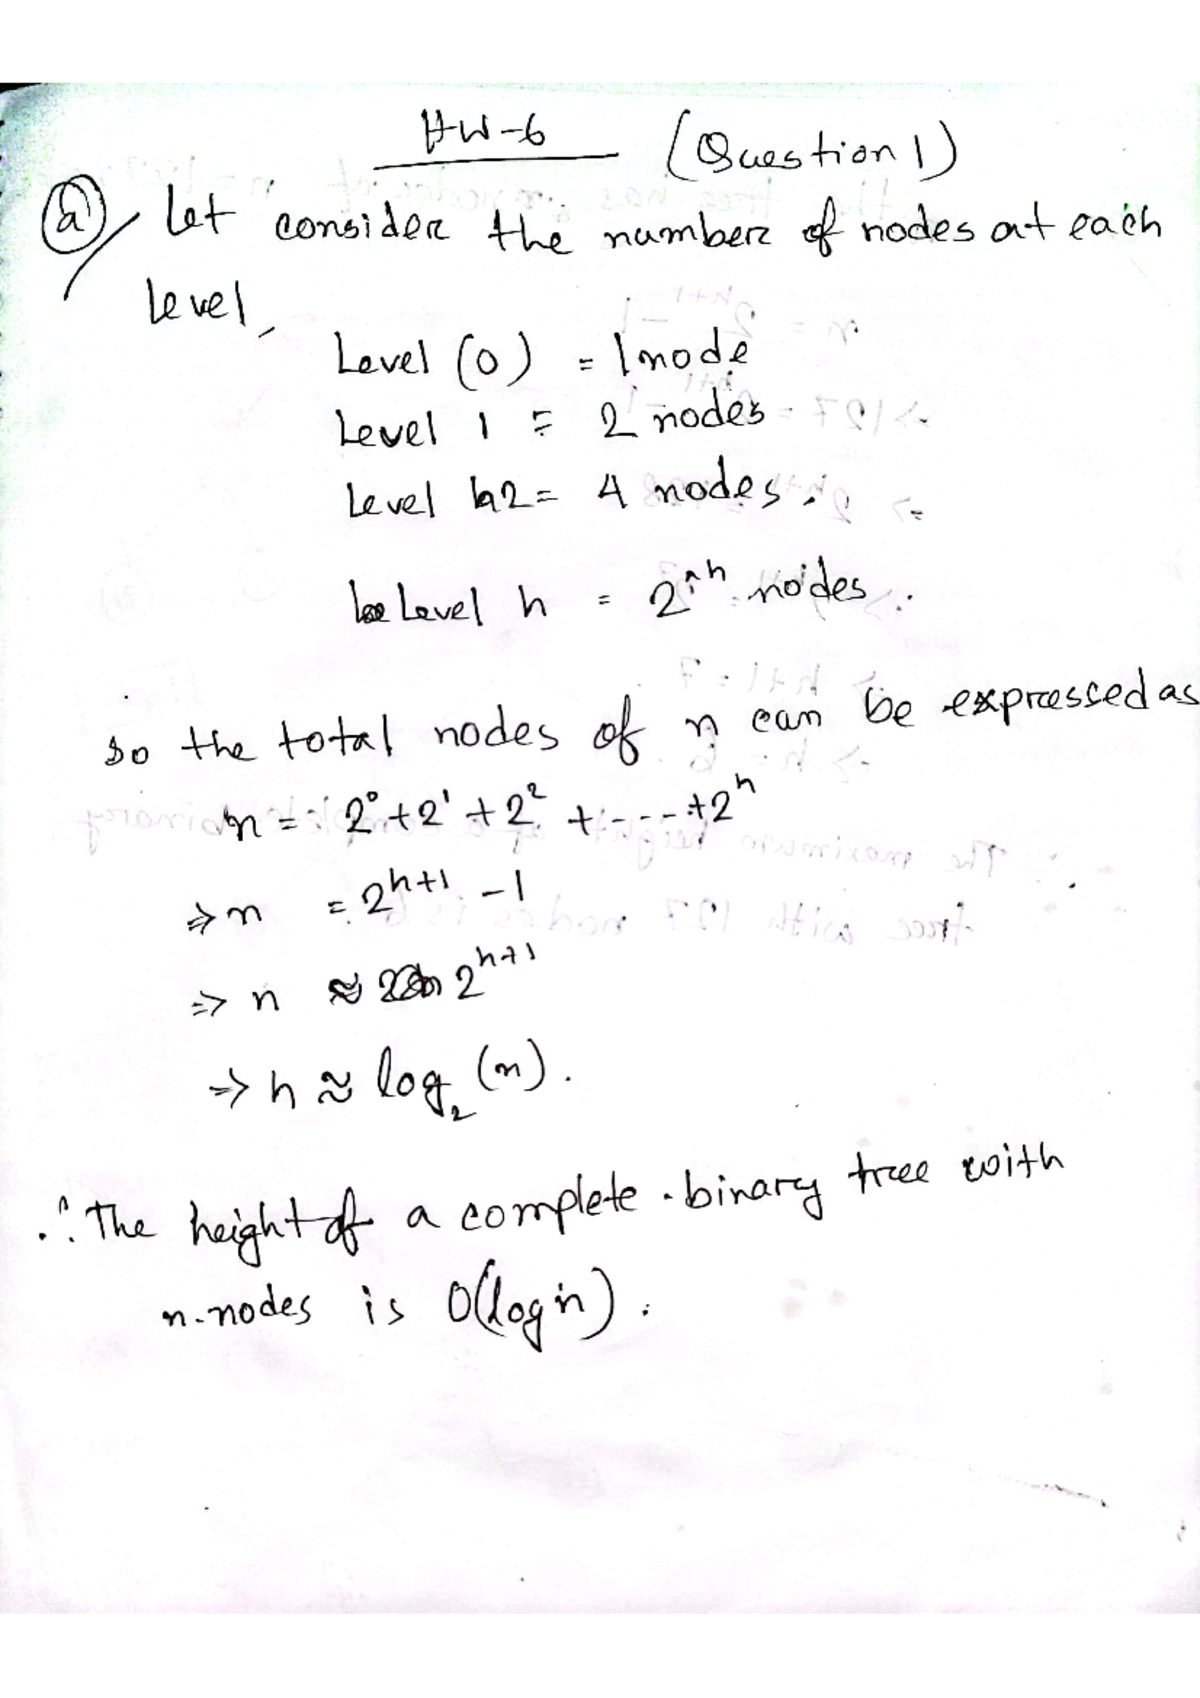 HW-6 (Question 1)
a) Let consider the number of nodes at each
level,
Level (0) = 1 node
Level 1 = 2 nodes
Level 2 = 4 nodes.
Level h = 2^h nodes.
so the total nodes of n can be expressed as
n = 2⁰ + 2¹ + 2² + ---- + 2^h
⇒ n = 2^(h+1) - 1
⇒ n ≈ 2^(h+1)
⇒ h ≈ log₂ (n).
∴ The height of a complete binary tree with
n-nodes is O(log n).